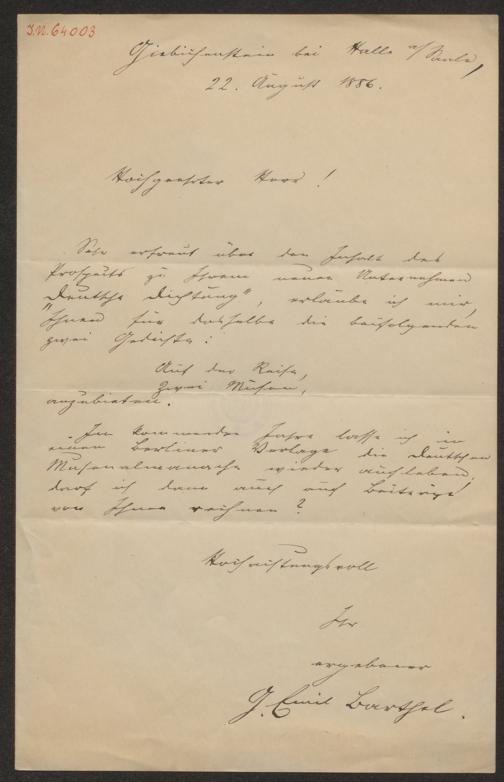 J.N. 64003
Giebichenstein bei Halle a/Saale,
22. August 1886.
Hochgeehrter Herr!
Sehr erfreut über den Inhalt des
Prospekts zu Ihrem neuen Unternehmen
„Deutsche Dichtung", erlaube ich mir,
Ihnen für dasselbe die beifolgenden
zwei Gedichte:
Auf der Reise,
Zwei Musen,
anzubieten.
Im kommenden Jahre lasse ich in
einem Berliner Verlage die Deutschen
Musenalmanache wieder aufleben,
darf ich dann auch auf Beiträge
von Ihnen rechnen?
Hochachtungsvoll
Ihr
ergebener
G. Emil Barthel.